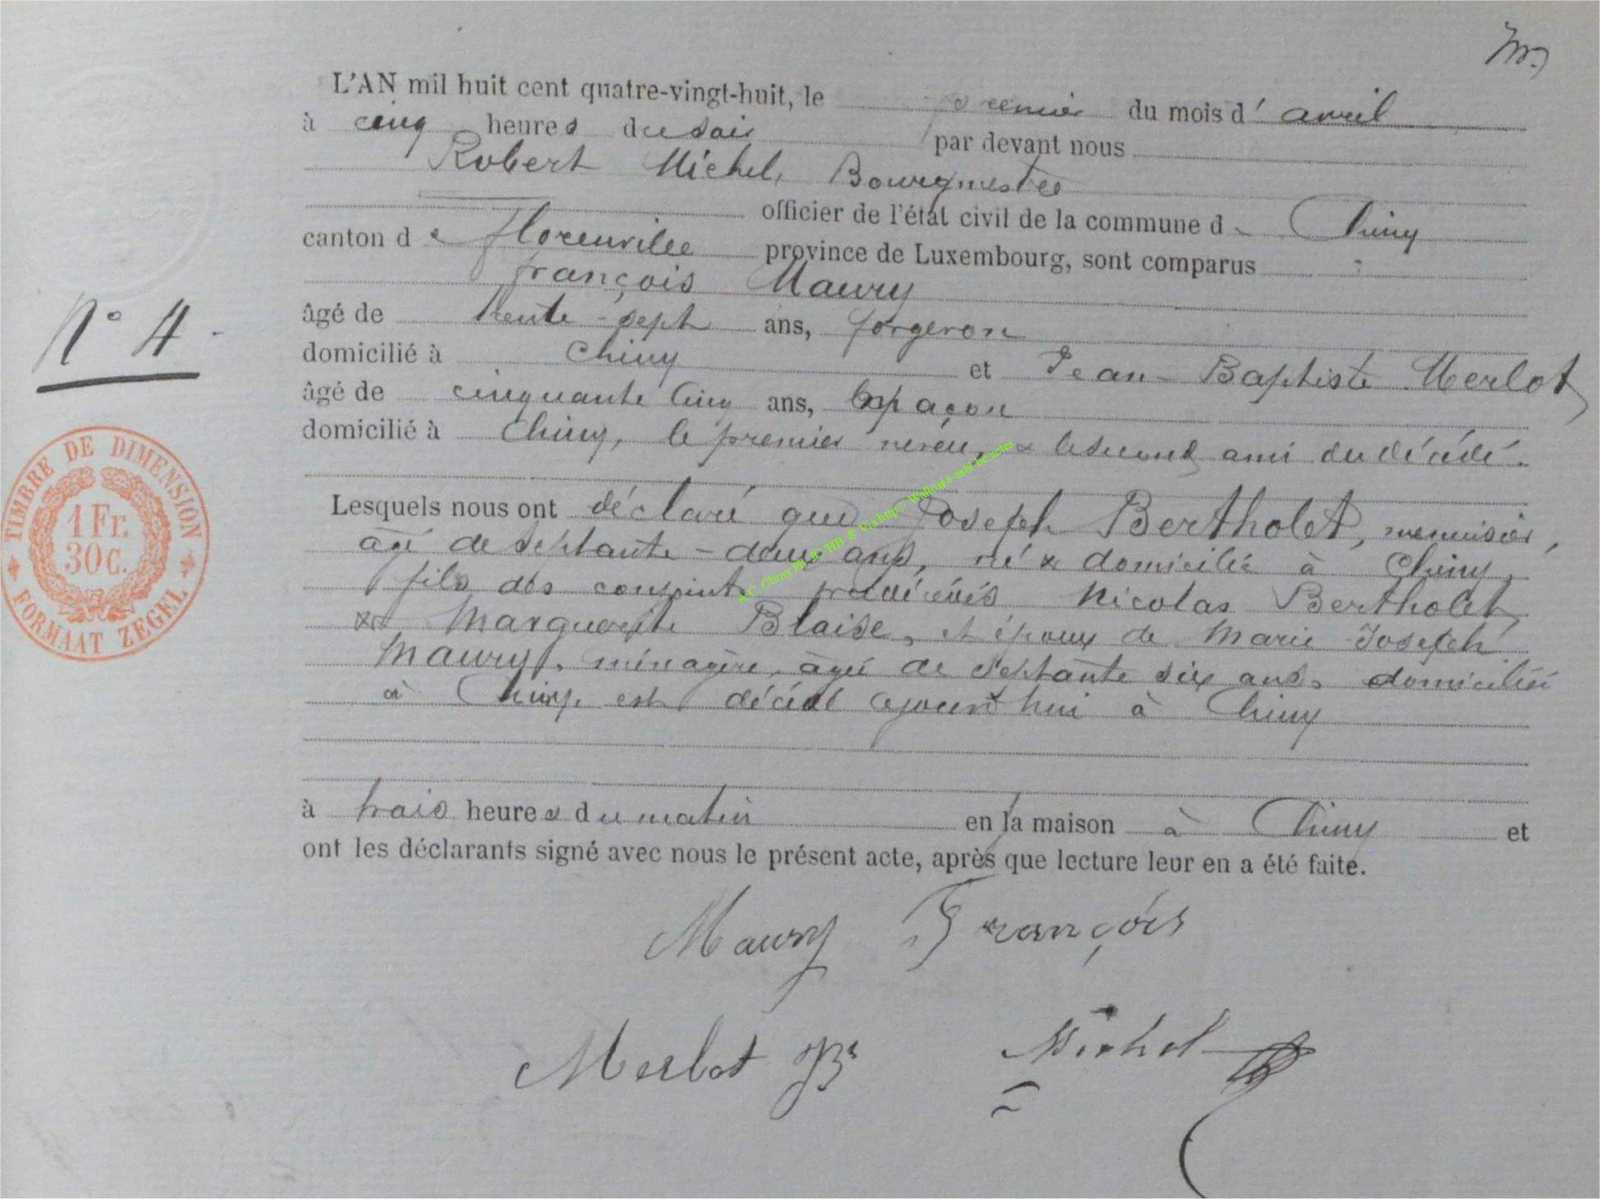 L'AN mil huit cent quatre-vingt-huit, le premier du mois d' avril
à cinq heures du soir par devant nous
Robert Michel, Bourgmestre
officier de l'état civil de la commune de Chiny
canton de Florenville province de Luxembourg, sont comparus
françois Maury
âgé de trente-sept ans, forgeron
domicilié à Chiny et Jean-Baptiste Merlot
âgé de cinquante cinq ans, maçon
domicilié à Chiny, le premier neveu, & le second ami du décédé.
Lesquels nous ont déclaré que Joseph Bertholet, menuisier,
âgé de septante-deux ans, né & domicilié à Chiny,
fils des conjoints prédécédés Nicolas Bertholet
& Marguerite Blaise, et époux de Marie Joseph
Maury, ménagère, âgée de septante six ans, domiciliée
à Chiny, est décédé aujourd'hui à Chiny
à trois heures du matin en la maison à Chiny et
ont les déclarants signé avec nous le présent acte, après que lecture leur en a été faite.
Maury François
Merlot JBt Michel
N° 4
TIMBRE DE DIMENSION
1 Fr.
30 C.
FORMAAT ZEGEL